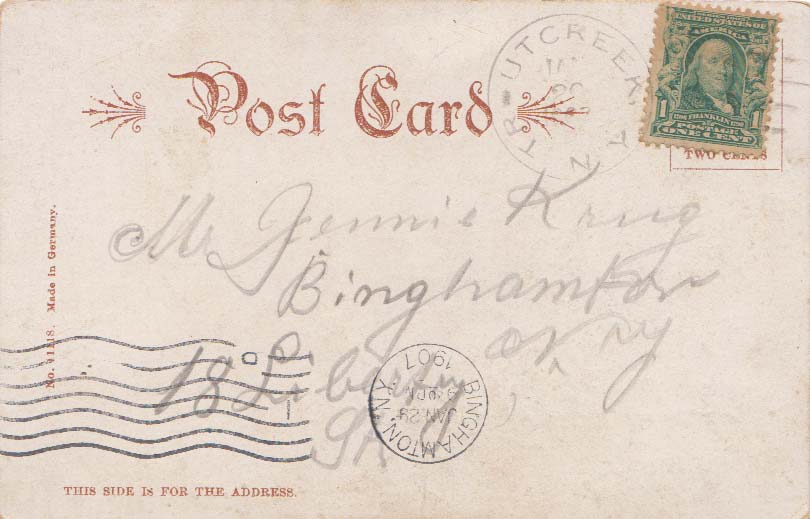 Post Card
UTCREEK
JAN
UNITED STATES OF
AMERICA
1 FRANKLIN 1
POSTAGE
ONE CENT
TWO CENTS
No. 11218. Made in Germany.
Mr Jennie Krug
Binghamton
N Y
18 Liberty
St
BINGHAMTON, N.Y.
JAN 29
PM
1907
THIS SIDE IS FOR THE ADDRESS.